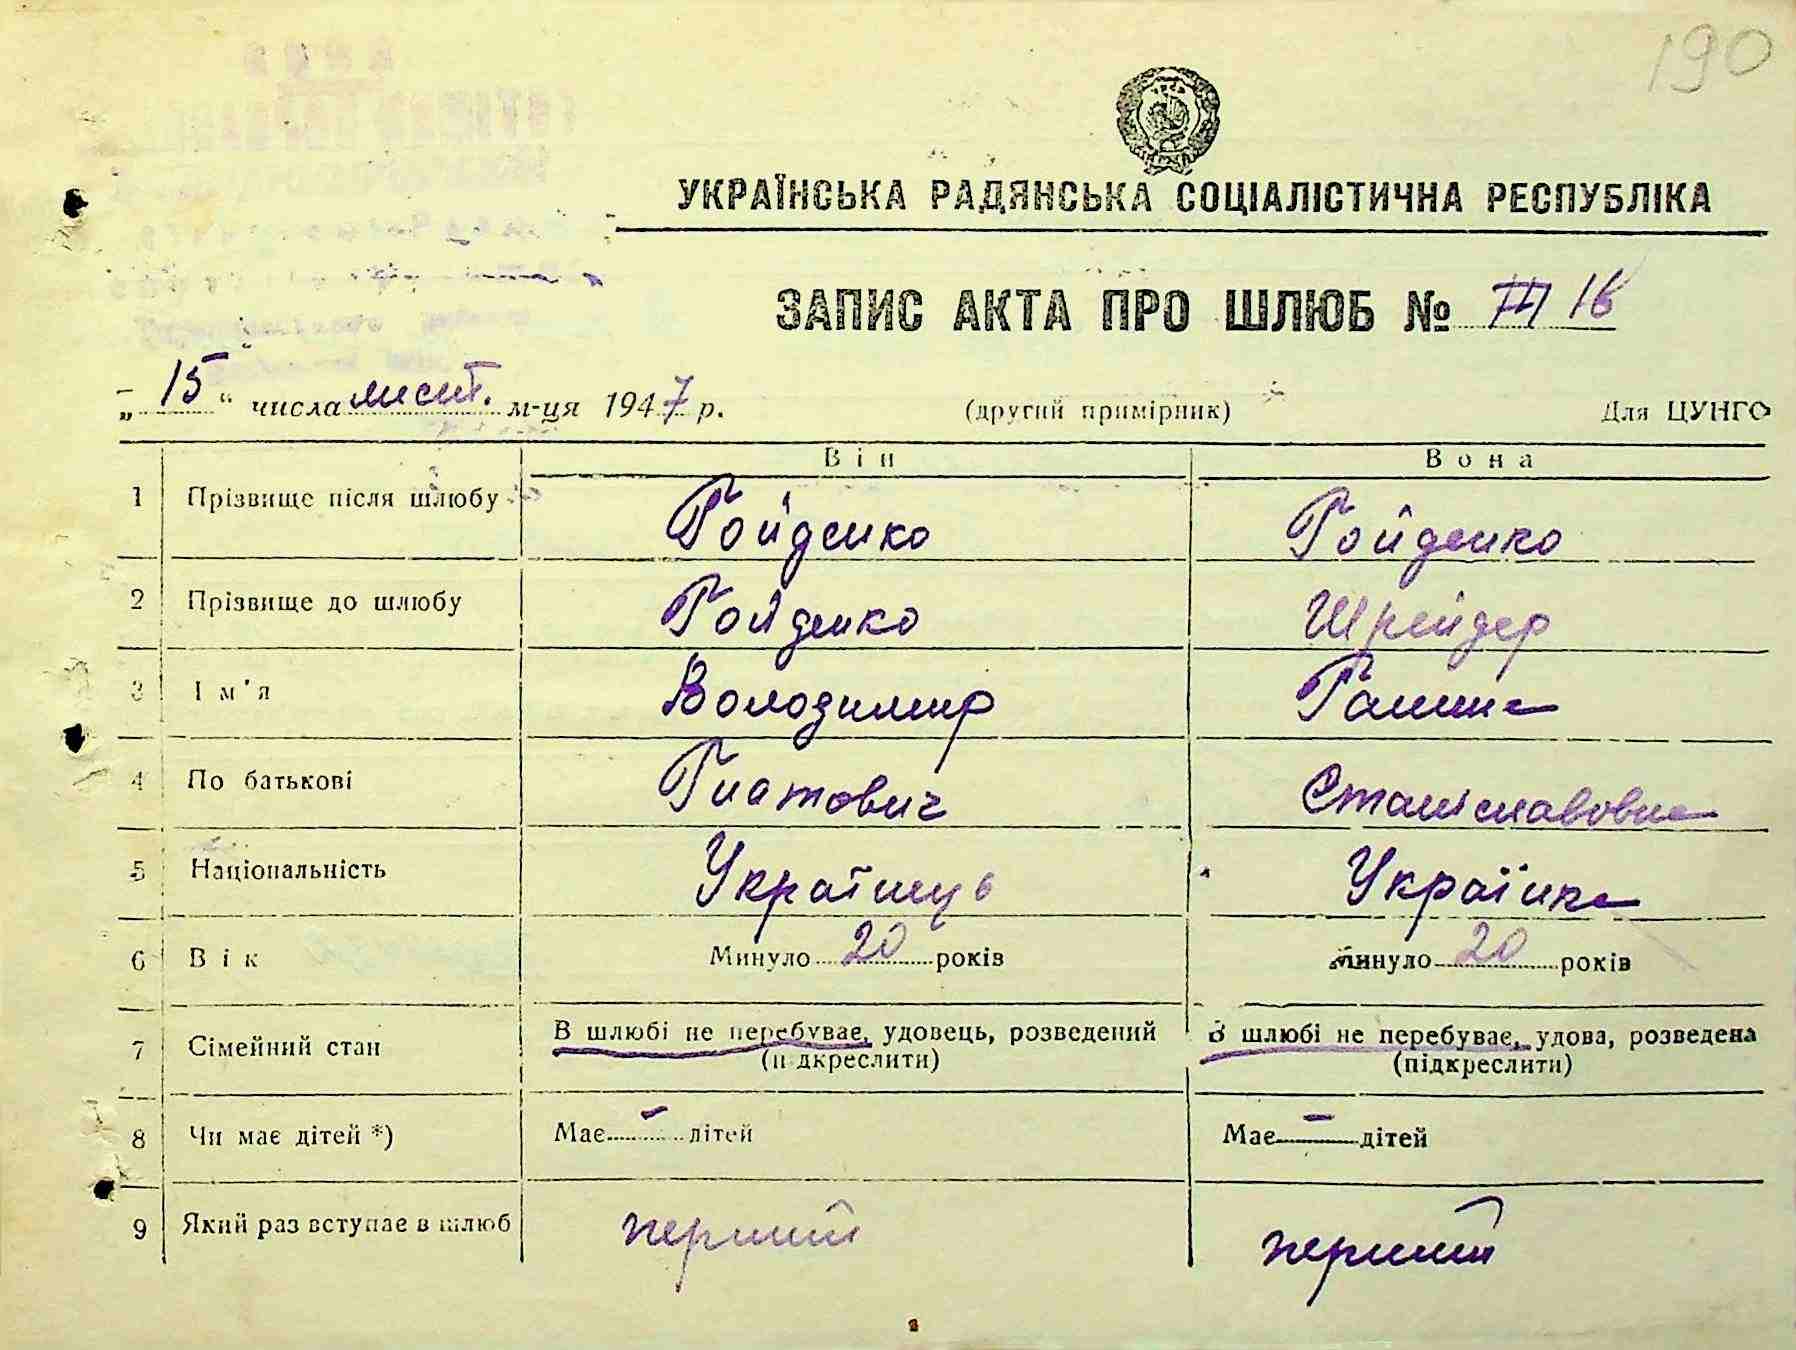 190
УКРАЇНСЬКА РАДЯНСЬКА СОЦІАЛІСТИЧНА РЕСПУБЛІКА
ЗАПИС АКТА ПРО ШЛЮБ № 16
„15“ числа лист. м-ця 1947 р. (другий примірник) Для ЦУНГО
Він Вона
1 Прізвище після шлюбу Гойденко Гойденко
2 Прізвище до шлюбу Гойденко Шрейдер
3 Ім'я Володимир Галина
4 По батькові Гнатович Станіславовна
5 Національність Українець Українка
6 Вік Минуло 20 років Минуло 20 років
7 Сімейний стан В шлюбі не перебуває, удовець, розведений В шлюбі не перебуває, удова, розведена
(підкреслити) (підкреслити)
8 Чи має дітей *) Має — дітей Має — дітей
9 Який раз вступає в шлюб перший перший